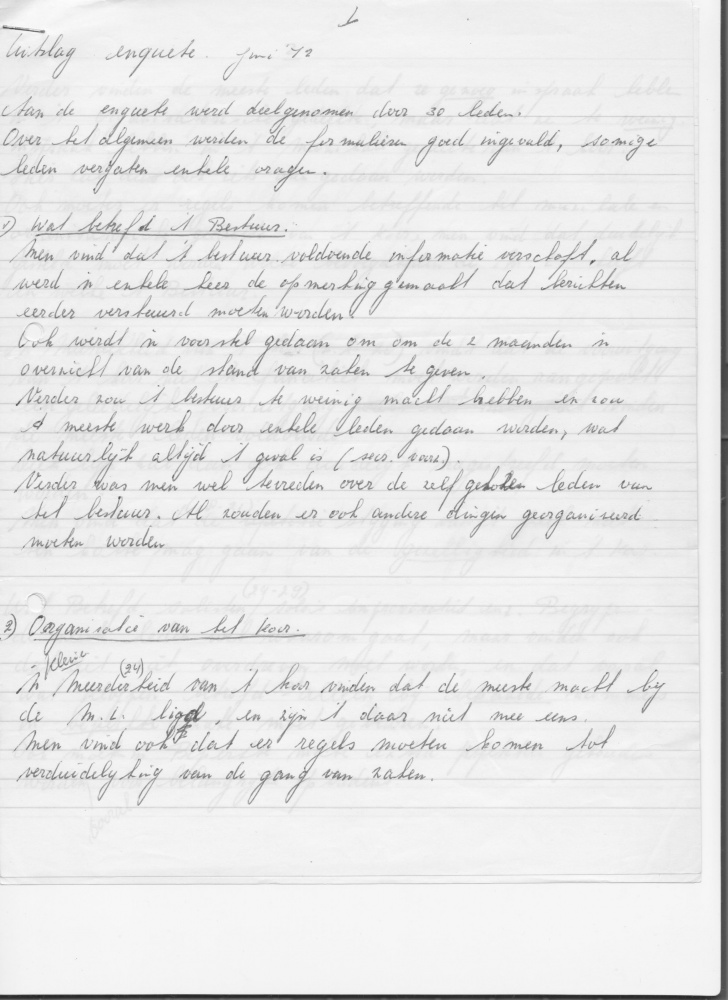 1
Uitslag enquete. Juni '72
Aan de enquete werd deelgenomen door 30 leden.
Over het algemeen werden de formulieren goed ingevuld, somige
leden vergaten enkele vragen.
1) Wat betrefd 't Bestuur.
Men vind dat 't bestuur voldoende informatie verschaft, al
werd 'n enkele keer de opmerking gemaakt dat berichten
eerder verstuurd moeten worden.
Ook werdt 'n voorstel gedaan om om de 2 maanden 'n
overzicht van de stand van zaken te geven.
Verder zou 't bestuur te weinig macht hebben en zou
't meeste werk door enkele leden gedaan worden, wat
natuurlijk altijd 't geval is (secr. voorz.)
Verder was men wel tevreden over de zelf gekozen leden van
het bestuur. Al zouden er ook andere dingen georganiseerd
moeten worden
2) Organisatie van het koor.
kleine
(24)
'n Meerderheid van 't koor vinden dat de meeste macht by
de M.L. ligt, en zijn 't daar niet mee eens.
Men vind ook dat er regels moeten komen tot
verduidelyking van de gang van zaken.